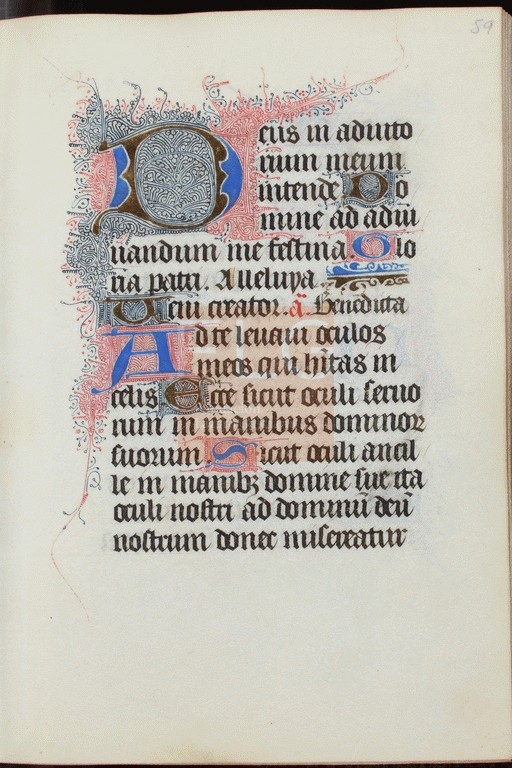 59
Deus in adiuto
rium meum
intende Do
mine ad adiu
uandum me festina. Glo
ria patri. Alleluya.
Ueni creator. a᷒. Benedicta
Ad te leuaui oculos
meos qui h̄itas in
celis Ecce sicut oculi seruo
rum in manibus dominoꝝ
suorum Sicut oculi ancil
le in manibꝫ domine sue ita
oculi nostri ad dominū deū
nostrum donec misereatur